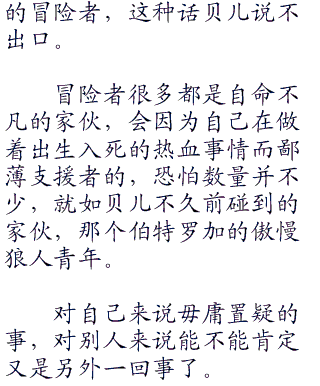 的冒险者，这种话贝儿说不
出口。
冒险者很多都是自命不
凡的家伙，会因为自己在做
着出生入死的热血事情而鄙
薄支援者的，恐怕数量并不
少，就如贝儿不久前碰到的
家伙，那个伯特罗加的傲慢
狼人青年。
对自己来说毋庸置疑的
事，对别人来说能不能肯定
又是另外一回事了。